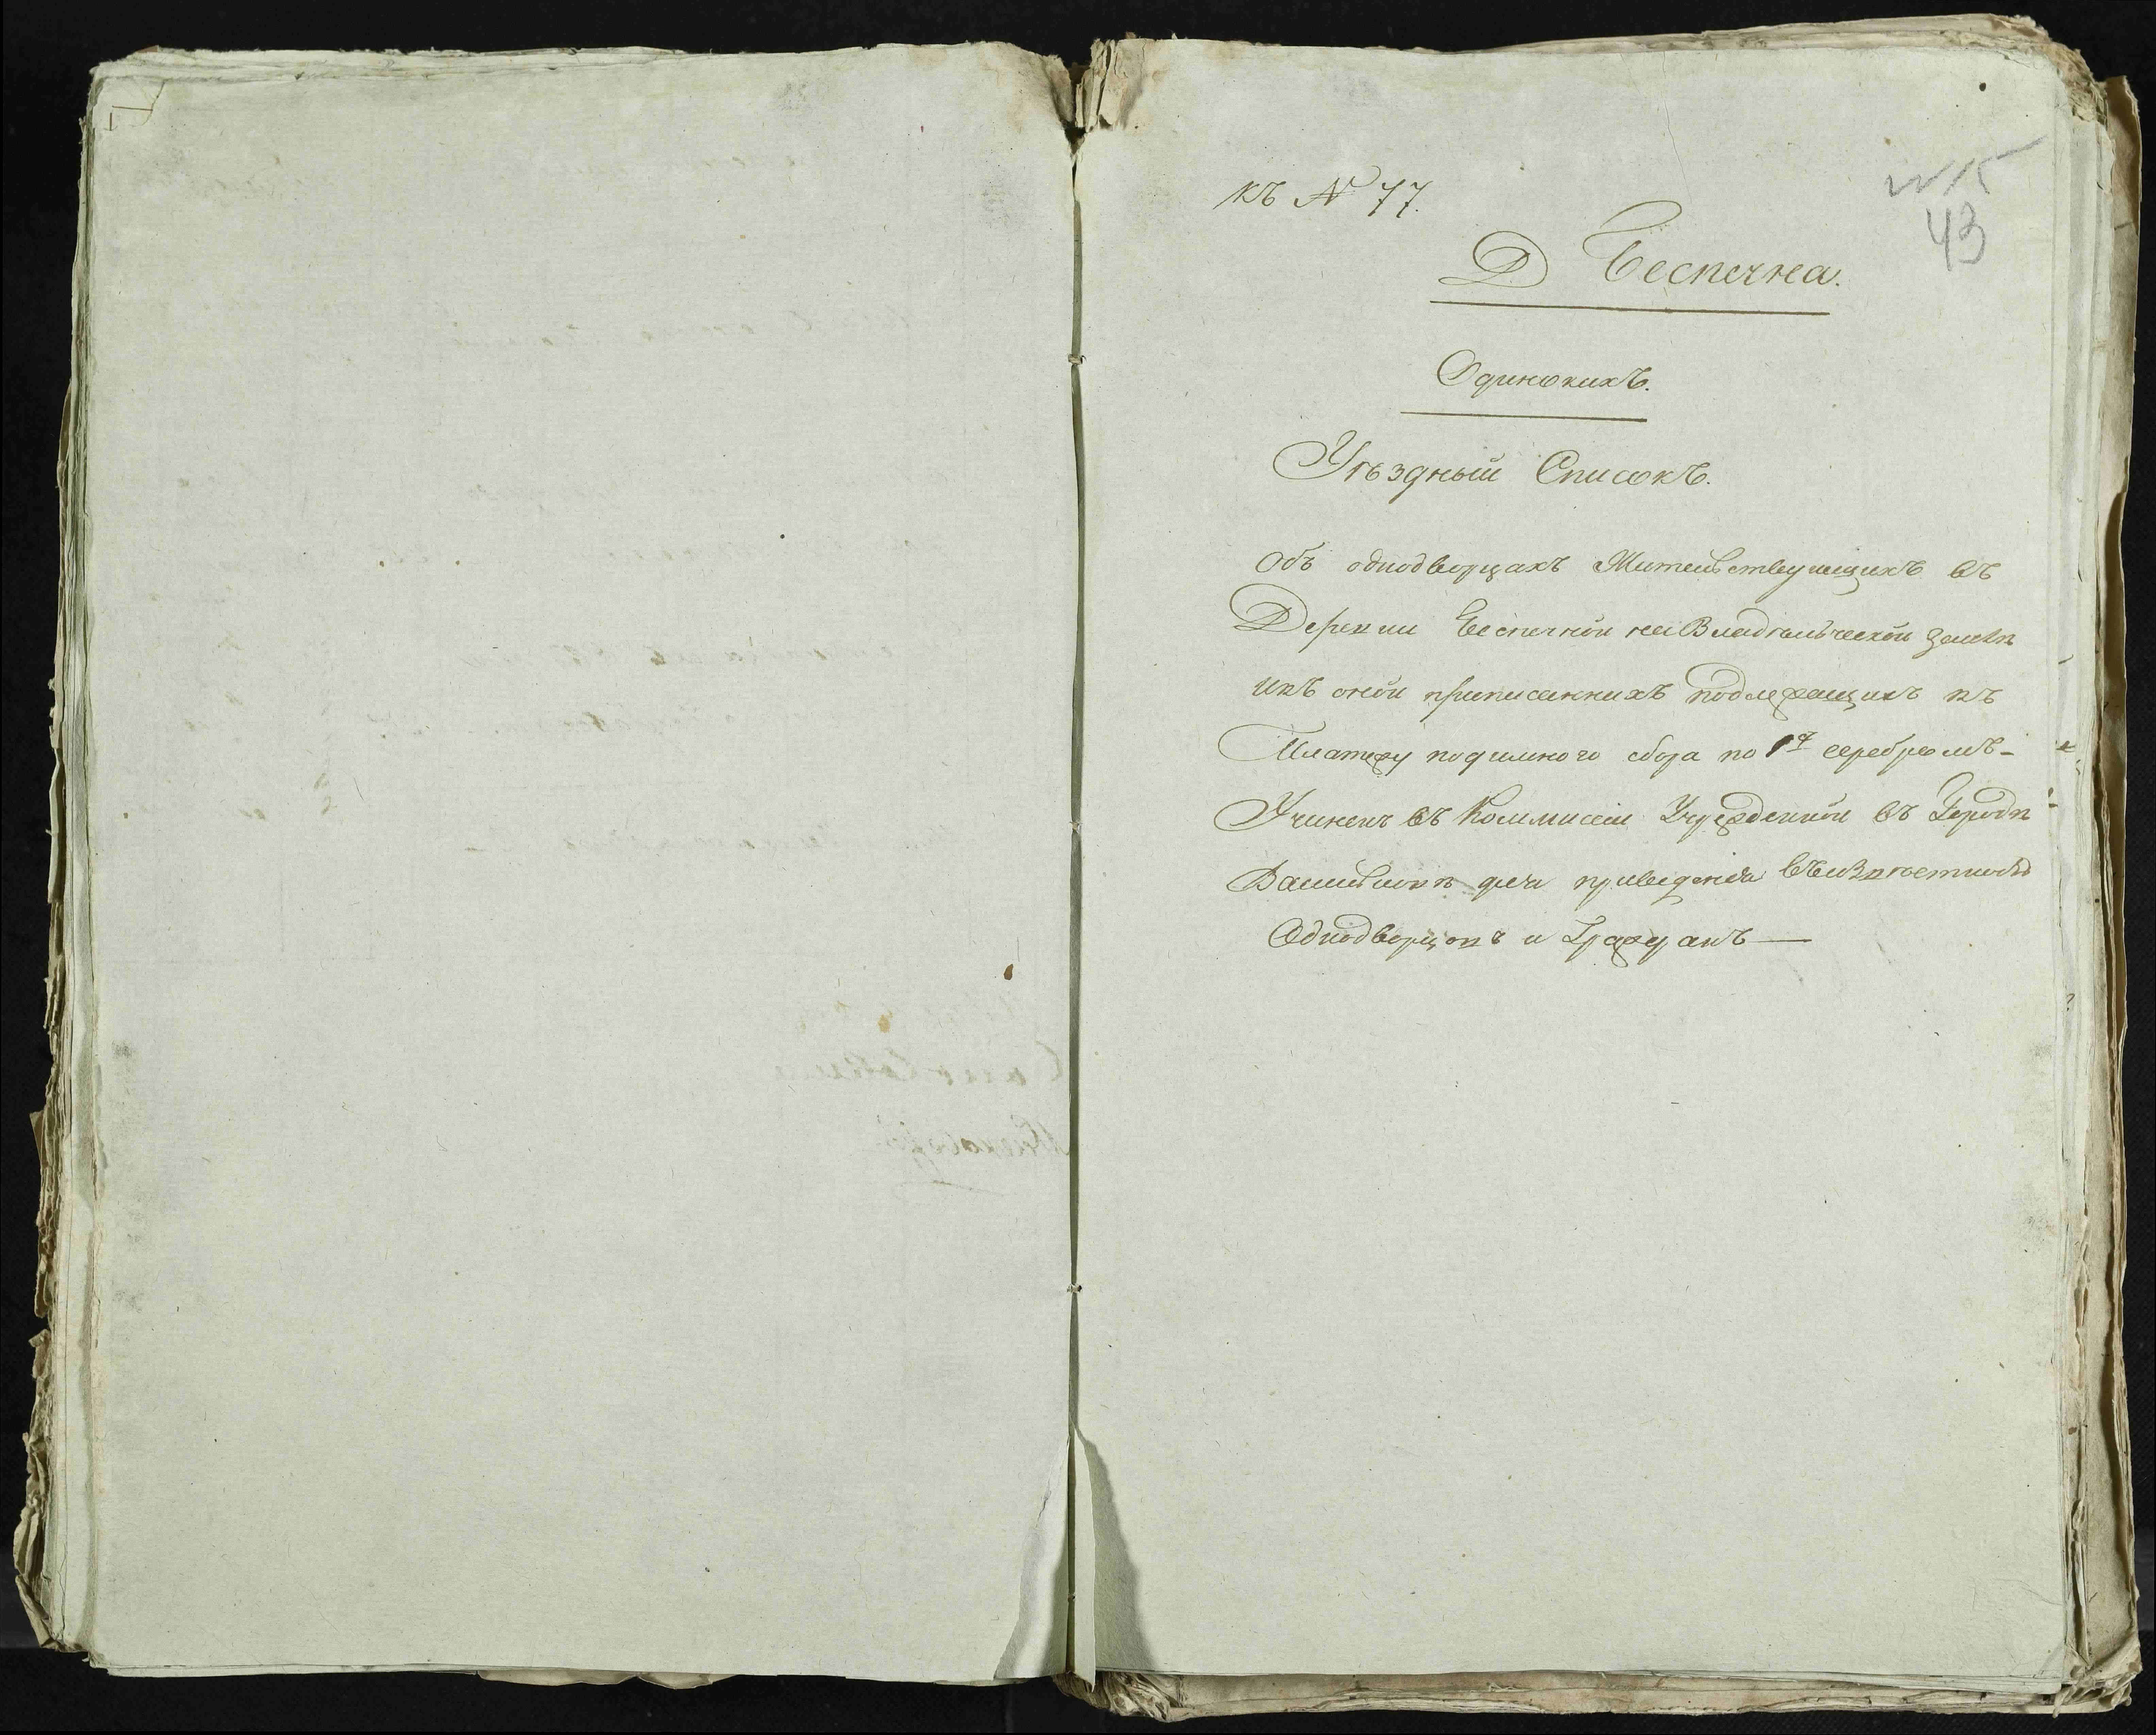 къ № 77.
43
Д Беспечна.
Одинокихъ.
Уѣздный Списокъ.
Объ однодворцахъ Жительствующихъ въ
Деревни Беспечной на Владѣльческой Землѣ
икъ оной приписанныхъ подлежащихъ къ
Платежу подимного сбора по 1 серебромъ-
Учиненъ въ Коммисіи Учрежденной въ Городѣ
для приведенія въ
Однодворцовъ и Гражданъ —